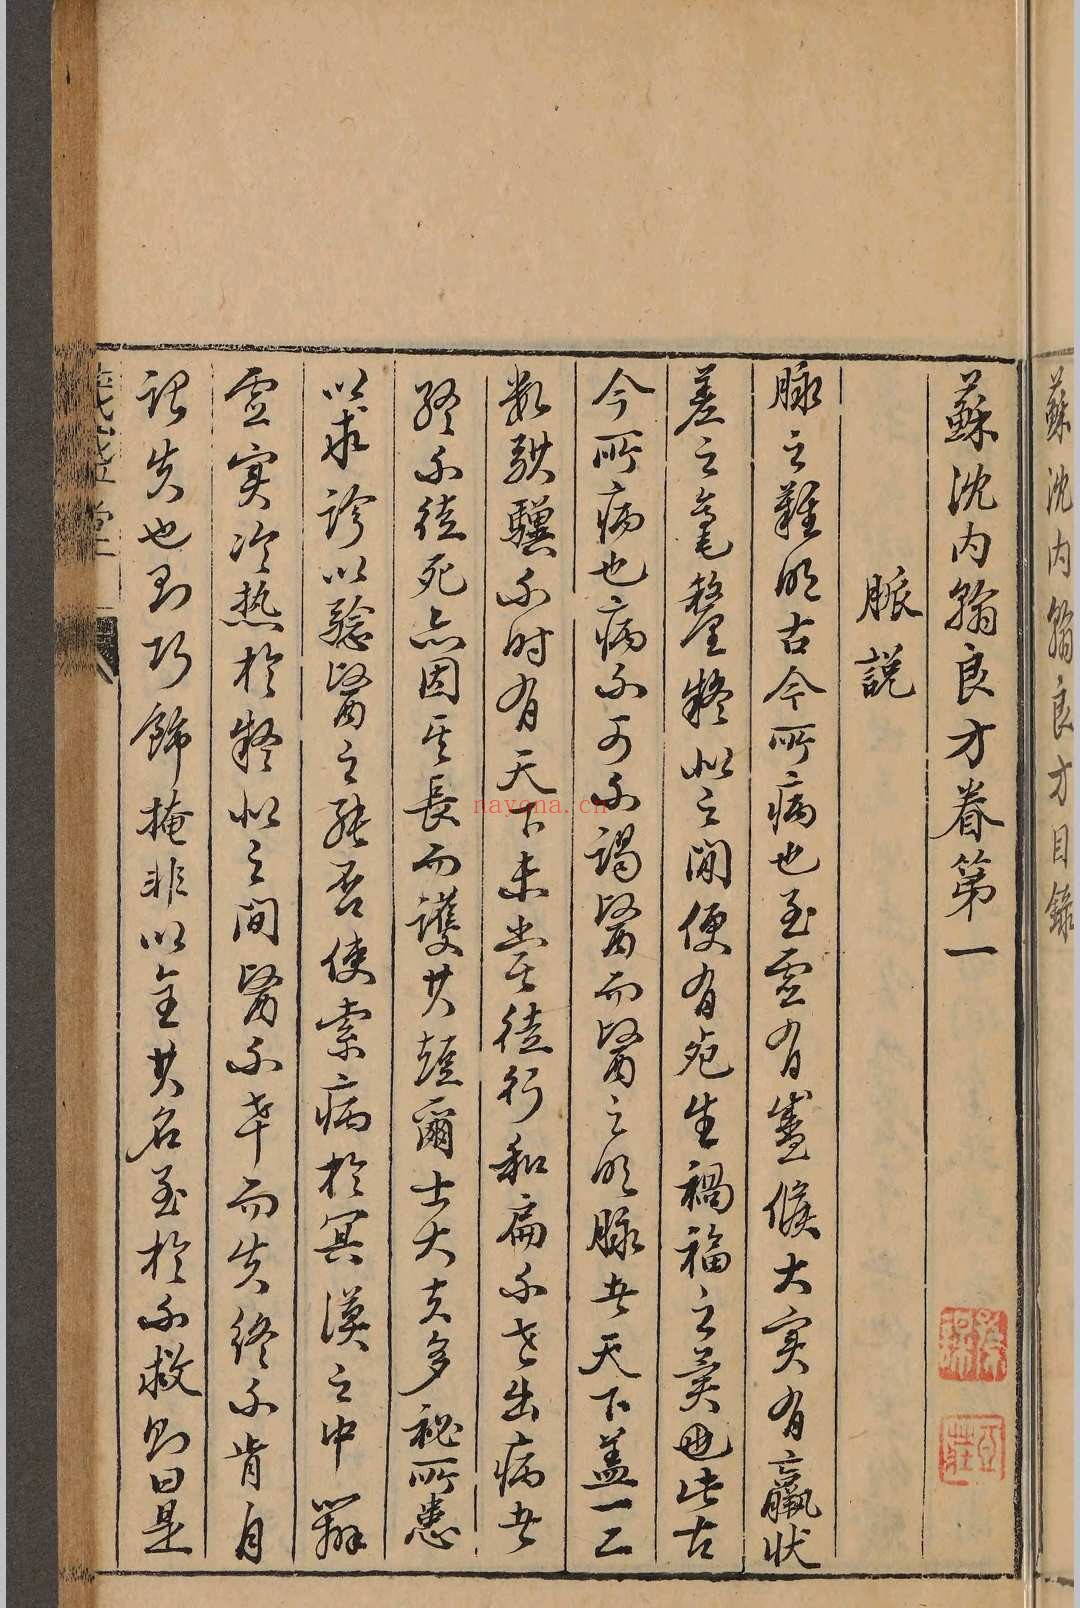 蘇沈內翰良方目錄
蘇沈內翰良方卷第一
脈說
脉之難明古今所病也至虛有盛候大實有羸狀
差之毫釐疑似之間便有死生禍福之異也此古
今所病也病不可不謁醫而醫之明脉者天下蓋一二
數騏驥不時有天下未嘗徒行和扁不世出病者
終不徒死亦因其長而護其短爾士大夫多秘所患
以求診以驗醫之能否使索病於冥漠之中辨
虛實冷熱於疑似之間醫不幸而失終不肯自
謂失也則巧飾掩非以全其名至於不救則曰是
nayona.cn